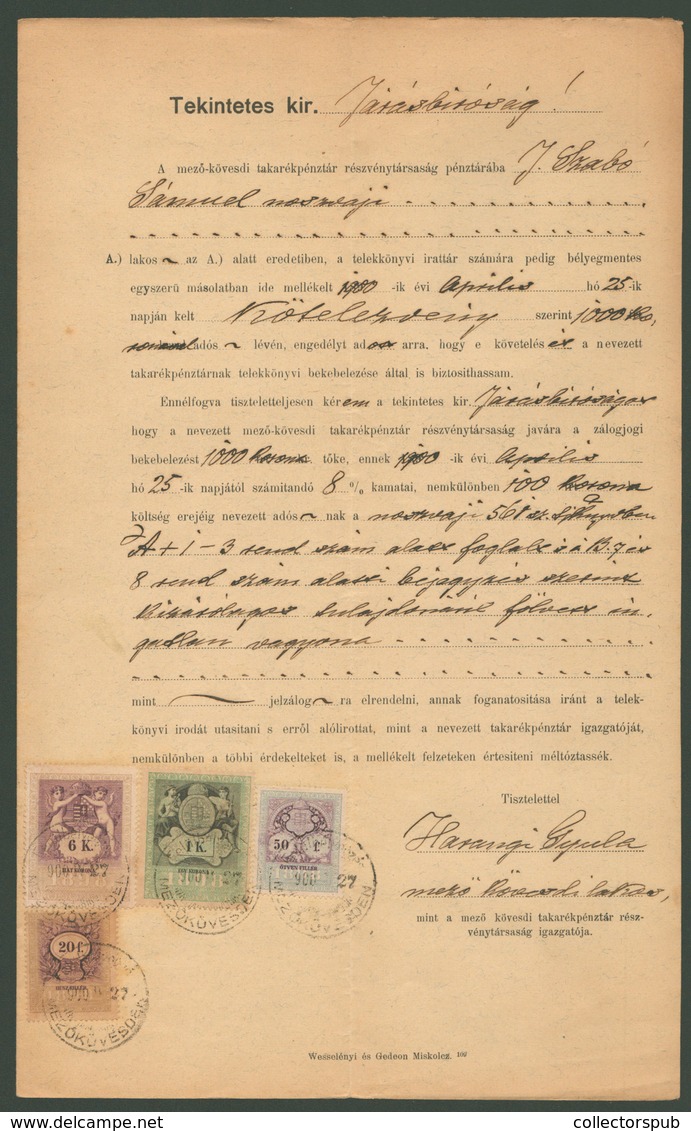 Tekintetes kir. Járásbiróság!
A mező-kövesdi takarékpénztár részvénytársaság pénztárába J. Szabó
Sámuel noszvaji
A.) lakos az A.) alatt eredetiben, a telekkönyvi irattár számára pedig bélyegmentes
egyszerü másolatban ide mellékelt 1900 -ik évi Április hó 25-ik
napján kelt Kötelezvény szerint 1000 Ko,
adós lévén, engedélyt ad arra, hogy e követelés a nevezett
takarékpénztárnak telekkönyvi bekebelezése által is biztosithassam.
Ennélfogva tiszteletteljesen kérem a tekintetes kir. Járásbiróságot
hogy a nevezett mező-kövesdi takarékpénztár részvénytársaság javára a zálogjogi
bekebelezést 1000 Korona tőke, ennek 1900 -ik évi Április
hó 25 -ik napjától számitandó 8 % kamatai, nemkülönben 100 Korona
költség erejéig nevezett adós nak a noszvaji 561 sz.
A + 1 - 3 rend szám alatt foglalt s a B. 7 és
8 rend szám alatti bejegyzés szerint
kizárólagos tulajdonáné fölvett in,
gatlan vagyona
mint jelzálog ra elrendelni, annak foganatositása iránt a telek-
könyvi irodát utasitani s erről alólirottat, mint a nevezett takarékpénztár igazgatóját,
nemkülönben a többi érdekelteket is, a mellékelt felzeteken értesiteni méltóztassék.
Tisztelettel
Harangi Gyula
mező kövesdi lakos,
mint a mező kövesdi takarékpénztár rész-
vénytársaság igazgatója.
6 K.
HAT KORONA
1 K.
EGY KORONA
50 f.
ÖTVEN FILLÉR
900 27
MEZŐKÖVESDEN
20 f.
HUSZ FILLÉR
900 27
MEZŐKÖVESDEN
Wesselényi és Gedeon Miskolcz. 102
www.delcampe.net
collectorspub